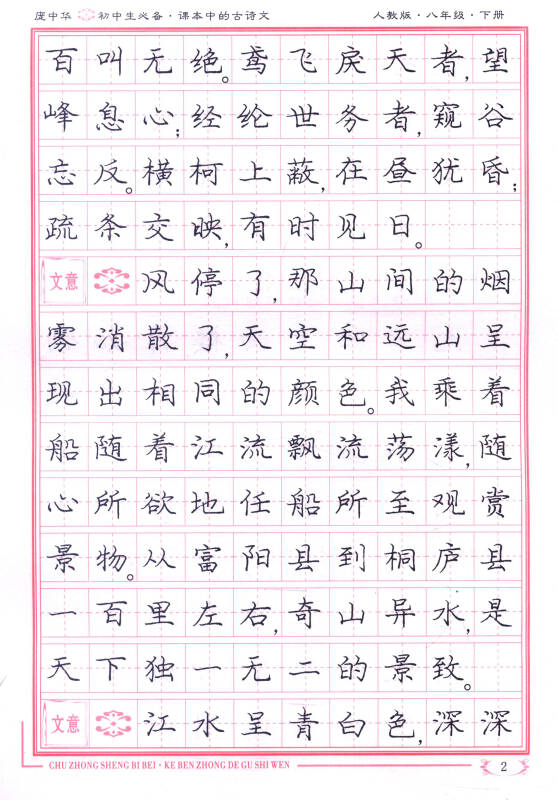 庞中华 初中生必备·课本中的古诗文 人教版·八年级·下册
百叫无绝。鸢飞戾天者，望
峰息心；经纶世务者，窥谷
忘反。横柯上蔽，在昼犹昏；
疏条交映，有时见日。
文意 风停了，那山间的烟
雾消散了，天空和远山呈
现出相同的颜色。我乘着
船随着江流飘流荡漾，随
心所欲地任船所至观赏
景物。从富阳县到桐庐县
一百里左右，奇山异水，是
天下独一无二的景致。
文意 江水呈青白色，深深
CHU ZHONG SHENG BI BEI · KE BEN ZHONG DE GU SHI WEN 2